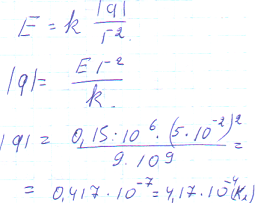 E = k |q| / r².
|q| = E r² / k.
|q| = 0,15·10⁶·(5·10⁻²)² / 9·10⁹ =
= 0,417·10⁻⁷ = 4,17·10⁻⁴(Кл)